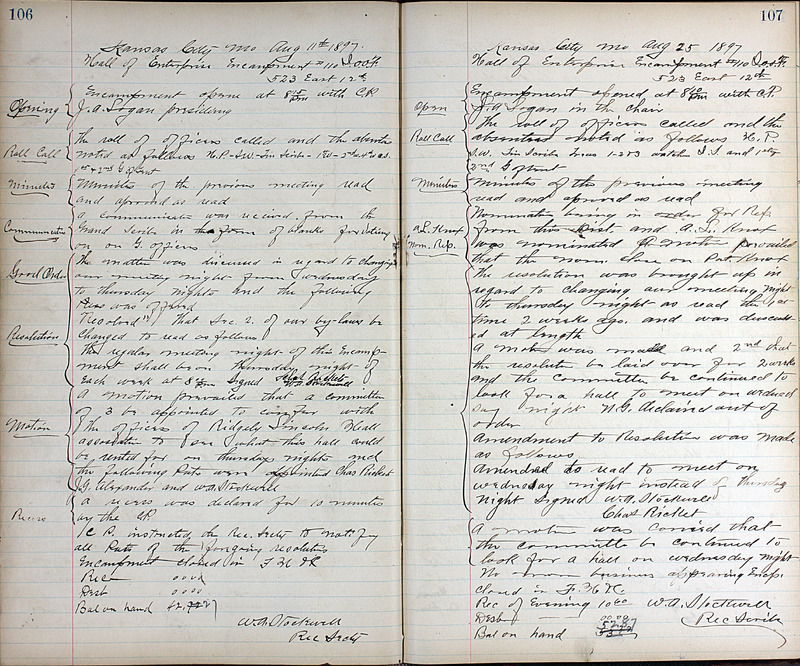 106
Kansas City Mo Aug 11th 1897.
Hall of Enterprise Encampment #110 I.O.O.F.
523 East 12th
Opening
Encampment opene at 8 15 Pm with C.P.
J.A. Logan presiding
Roll Call
The roll of officers called and the absents
noted as follows H.P. S.W.
Minutes
Minutes of the previous meeting read
and approved as read
Communication
a communication was received from the
Grand Scribe in the form of blanks for voting
on G. officers
Good Order
The matter was discussed in regard to changing
our meeting night from Wednesday
to thursday nights and the following
Res was offered
Resolution
Resolved that Sec. 2. of our by-laws be
changed to read as follows
The regular meeting night of this Encamp-
ment shall be on thursday night of
Each week at 8 Pm Signed Chas Rickets
W.A. Stockwell
Motion
A motion prevailed that a committee
of 3 be appointed to confer with
the officers of Ridgely Lincoln Hall
association to see what this hall could
be rented for on thursday nights and
the following Pats were appointed Chas Ricket
J.G. Alexander and W.A. Stockwell
Recess
a recess was declared for 10 minutes
by the C.P.
C P. instructed the Rec. Secty to notify
all Pats of the foregoing resolution
Encampment closed in F H
Rec 0000
Disb 0000
Bal on hand
W.A. Stockwell
Rec Secty
107
Kansas City Mo Aug 25 1897
Hall of Enterprise Encampment #110 I.O.O.F.
523 East 12th
Open
Encampment opened at 8 Pm with C.P.
J.A. Logan in the chair
Roll Call
The roll of officers called and the
absentees noted as follows H.P.
S.W. and
2nd G of tent
Minutes
Minutes of the previous meeting
read and approved as read
A.L. Knox
Nom. Rep.
Nominations being in order for Rep.
from this Dist. and A.L. Knox
was nominated A motion prevailed
that the nom. close on Pat. Knox
the resolution was brought up in
regard to changing our meeting night
to thursday night as read the 1st
time 2 weeks ago. and was discuss-
ed at length
a motion was made and 2nd that
the resolution be laid over for 2 weeks
and the committee be continued to
look for a hall to meet on wednes
day night N.G. declared out of
order
Amendment to Resolution was made
as follows
Amended to read to meet on
wednesday night instead of Thursday
Night Signed W.A. Stockwell
Chas Ricket
A motion was carried that
the committee be continued to
look for a hall on wednesday night
No more business appearing Encp.
closed in F. H
Rec of Evening 10 00 W.A. Stockwell
Disb Rec Scribe
Bal on hand